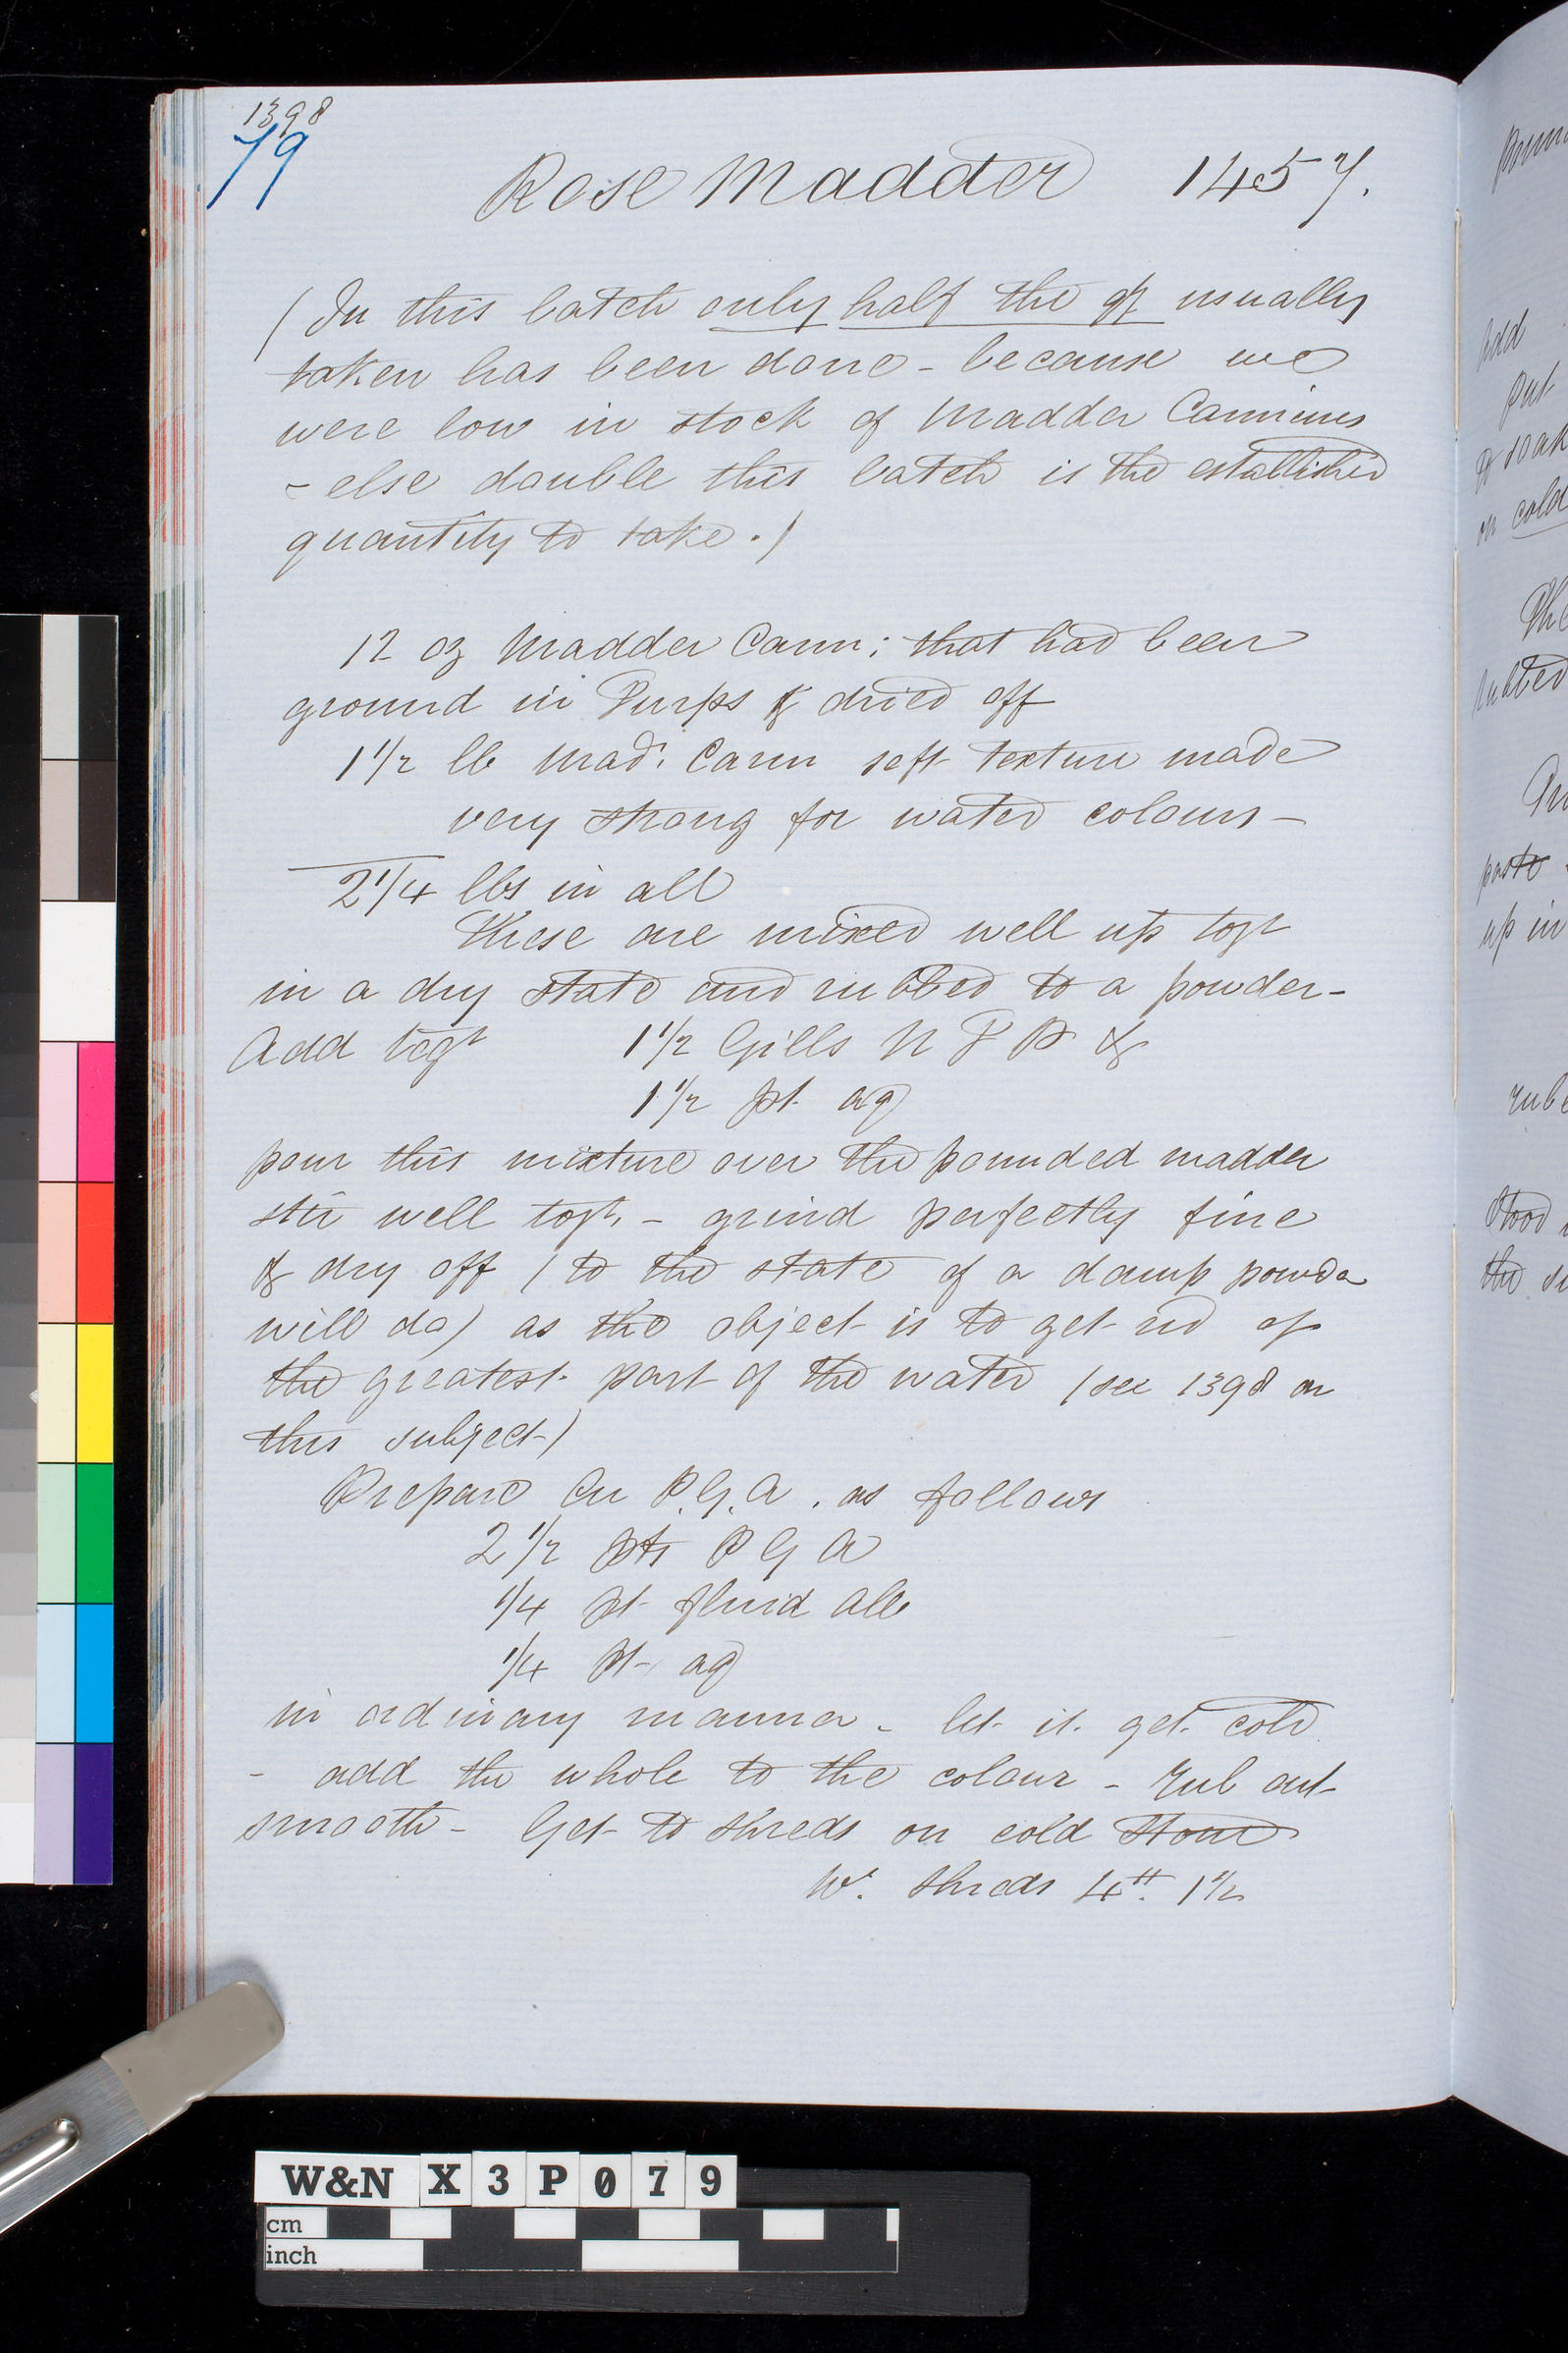 1398
79
Rose Madder 1457.
(In this batch only half the qy usually
taken has been done - because we
were low in stock of Madder Carmines
- else double this batch is the established
quantity to take.)
12 oz Madder Carm; that had been
ground in Turps & dried off
1 1/2 lb Mad. Carm soft texture made
very strong for water colours -
2 1/4 lbs in all
These are mixed well up togt
in a dry state and rubbed to a powder -
Add togt 1 1/2 Gills N P &
1 1/2 pt aq
pour this mixture over the pounded madder
stir well togt. - grind perfectly fine
& dry off (to the state of a damp powder
will do) as the object is to get rid of
the greatest part of the water (see 1398 on
this subject)
Prepare P.G.A. as follows
2 1/2 pts P G A
1/4 pt fluid alb
1/4 pt aq
in ordinary manner - let it get cold
- add the whole to the colour - rub out
smooth - Get to shreds on cold stone
Wt. shreds 4 lb. 1 1/2
Add
put
to soak
on cold
The
rubbed
paste
up in
rub
Stood
the
W&N X3P079
cm
inch